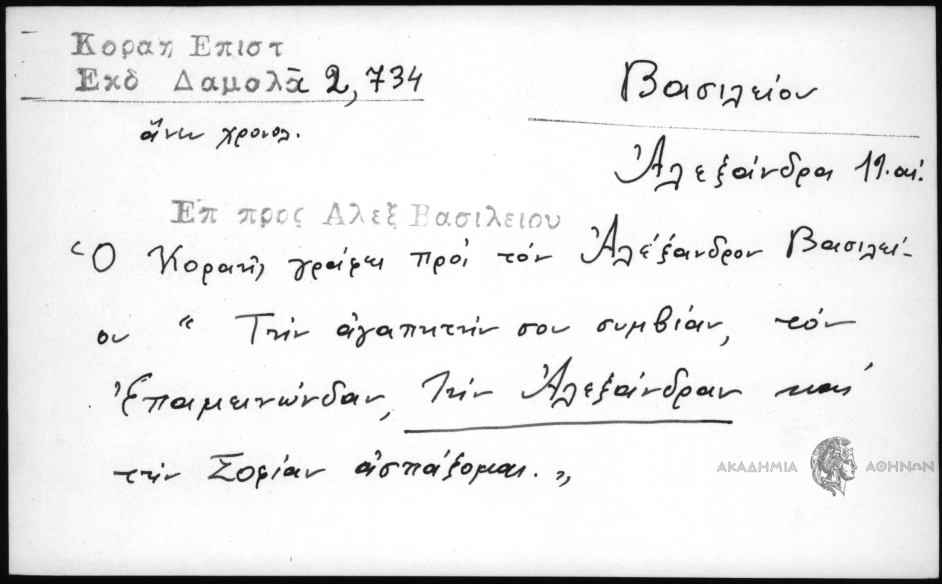 Κοραη Επιστ
Εκδ Δαμαλᾶ 2, 734
ἄνευ χρονολ.
Βασιλείου
Ἀλεξάνδρα 19. αἰ.
Επ προς Αλεξ Βασιλειου
Ὁ Κοραῆς γράφει πρὸς τὸν Ἀλέξανδρον Βασιλεί-
ου " Τὴν ἀγαπητήν σου συμβίαν, τὸν
Ἐπαμεινώνδαν, τὴν Ἀλεξάνδραν καὶ
τὴν Σοφίαν ἀσπάζομαι. "
ΑΚΑΔΗΜΙΑ ΑΘΗΝΩΝ